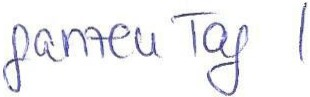 ganzen Tag |